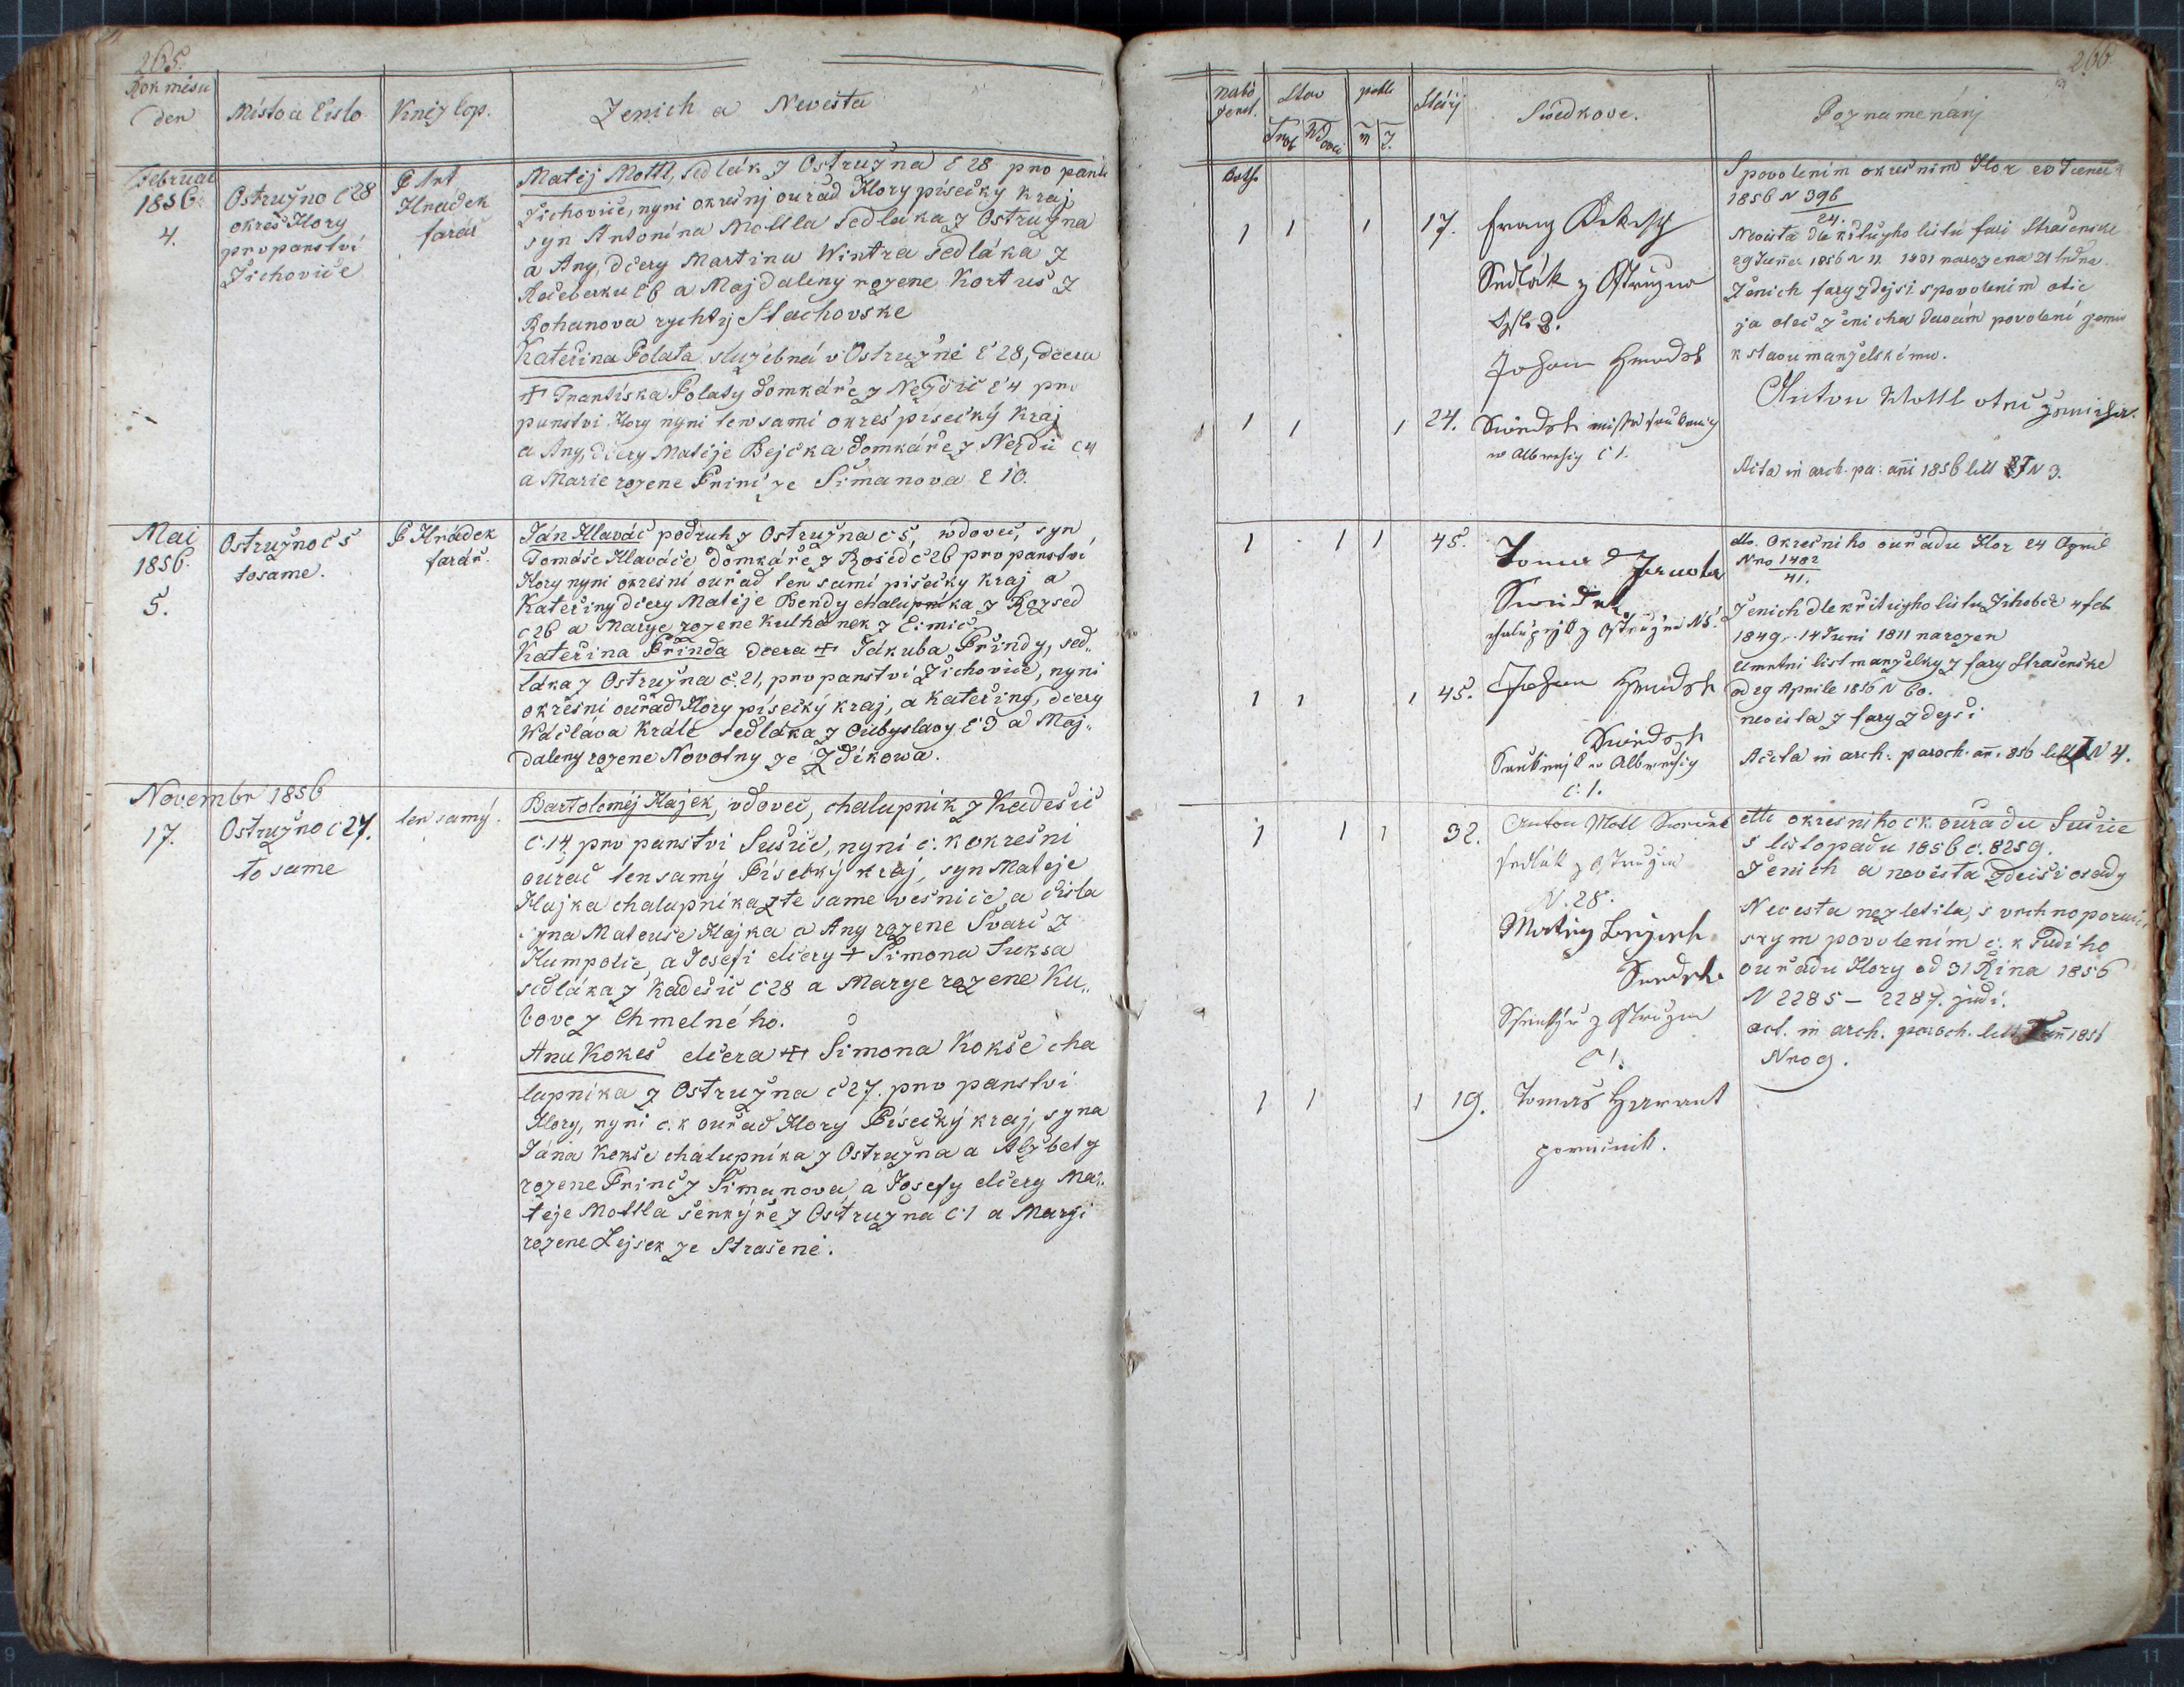 265.
Rok měsíc
den
Místo a Číslo
Kněz kop.
Ženich a Nevěsta
Februar
1856.
4.
Ostružno č 28
okres Hory
prv panství
Žichovice
P Ant
Hradek
farář
Matěj Mottl, sedlák z Ostružna č 28 prv panst
Žichovice, nyni okresnj ouřad Hory písecky kraj,
syn Antonína Mottla sedlaka z Ostružna
a Any, dcery Martina Wintra sedláka z
č 6 a Majdaleny rozene Kortus z
Bohanova rychty Stachovske
Kateřina Polata služebná v Ostružně č 28, dcera
+ Frantiska Polaty domkáře z Nezdic č 4 prv
panstvi Hory nyni ten sami okres písecký Kraj
a Any, dcery Matěje Bejčka domkáře z Nezdic č 4
a Marie rozene Princ ze Šimanova č 10.
Mai
1856.
5.
Ostružno č 5
to same.
P Hrádek
farář.
Ján Hlaváč podruh z Ostružna č 5, wdovec, syn
Tomáše Hlaváče domkáře z Rosed č 26 prv panství
Hory nyni okresní ouřad ten sami písecky kraj a
Kateřiny dcery Matěje Bendy chalupníka z Rozsed
č 26 a Marye rozene Kulhánek z Čimic
Kateřina Přinda dcera + Jákuba Přindy, sed„
láka z Ostružna č. 21, prv panství Žichovice, nyni
okresní ouřad Hory písecký kraj, a Kateřiny, dcery
Wáclava Krále sedláka z Oubyslavy č 3 a Maj„
daleny rozene Novotny ze Zdikowa.
Novembr 1856
17.
Ostružno č 27.
to same
ten samý.
Bartoloměj Hajek, vdovec, chalupník z Kadešic
č. 14 prv panstvi Sušic, nyni c. k okresni
ouřad ten samý Písecký kraj, syn Mateje
Hajka chalupníka z te same vesnice, a čisla
syna Matouše Hajka a Any rozene Svarc z
Kumpolic, a Josefi dcery + Šimona Suksa
sedláka z Kadešic č 28 a Marye rozene Ku„
bove z Chmelného.
Ana Kokeš dcera + Šimona Kokše cha
lupníka z Ostružna č 27. prv panstvi
Hory, nyni c. k ouřad Hory Písecký kraj, syna
Jána Kokše chalupníka z Ostružna a Alžbety
rozene Princ z Šimanova, a Josefy dcery Ma„
teje Mottla šenkýře z Ostružna č 1 a Maryi
rozene Lejsek ze Strašenė.
266
nabo
ženst.
Stav
Swob
Wdovci
pohl
m
Z.
Stářj
Swědkove.
Poznamenánj
Kath.
1 1 1 17.
Franz
Sedlák z Ostružna
Johann
1 1 1 24.
č 1.
S povolením okresnim Hor 20 Jenner
1856 N 396
24.
Nevěsta dle křtícyho listu fari Strašenske
29 Jenner 1856 N 11 1831 narozena 21 ledna.
Ženich fary zdejsi s povolením otce
ja otec ženicha dávám povolení jemu
k stavu manželskému.
Anton Mottl otec ženicha.
Acta in arch. pa: ani 1856 litt N 3.
1 1 1 45.
Svědek
chalupnik z Ostružna N 5.
1 1 1 45.
Johann
č: 1.
dto. Okresniho ouřadu Hor 24 April
Nro 1402
41.
Ženich dle křticiyho listu Žihobce 4 feb.
1849, 14 Juni 1811 narozen
Umrtni list manželky z fary Strašenske
od 29 Aprile 1856 N 60.
nevěsta z fary zdejsi
Accta in arch: paroch. an. 856 litt N 4.
1 1 1 32.
Anton Motl
sedlák z Ostružna
N. 28.
Matěj
z Ostružna
č 1.
1 1 1 19.
Tomáš Harant
poručník.
dtto okresniho c k. ouřadu Sušice
5 listopadu 1856 č. 8259.
Ženich a nevěsta zdejší osady
Nevesta nezletila, s vrchnoporuč„
skym povolením c. k Sudiho
ouřadu Hory od 31 Řina 1856
N 2285 — 2287. judi.
act. in arch. paroch. litt an 1856
Nro 9.